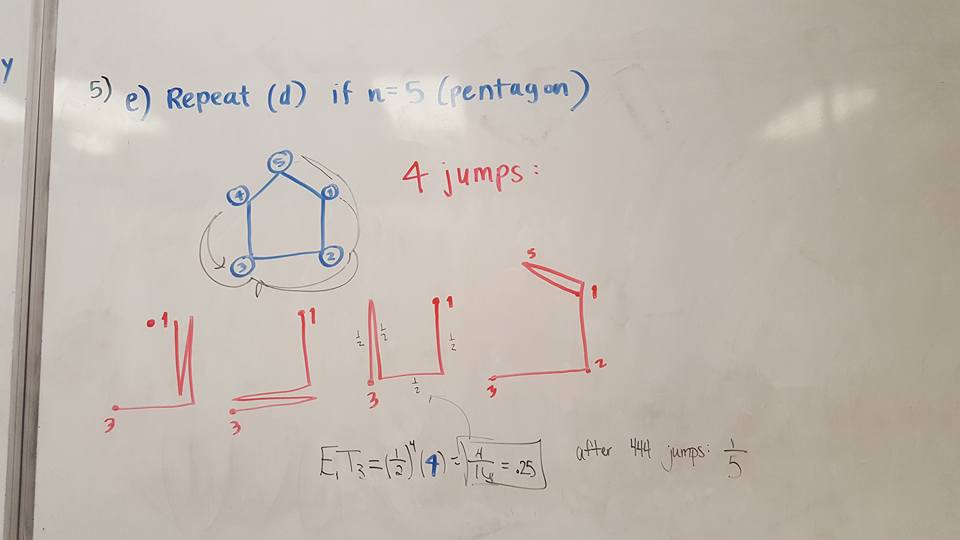 y
5) e) Repeat (d) if n=5 (pentagon)
5
4 1
3 2
4 jumps:
1
3
1
3
1/2 1/2 1 1/2
3 1/2
5
1
2
3
E₁T₃ = (1/2)⁴(4) = 4/16 = .25
after 444 jumps: 1/5